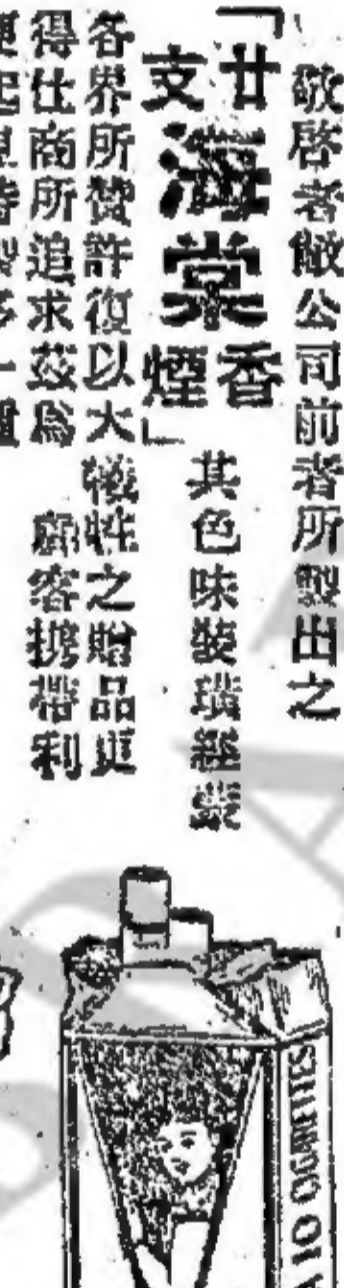 敬啓者敝公司前者所製出之
「廿支海棠香煙」其色味裝璜經蒙
各界所贊許復以大犧牲之贈品更
得仕商所追求茲爲 顧客携帶利
10 CIGARETTES